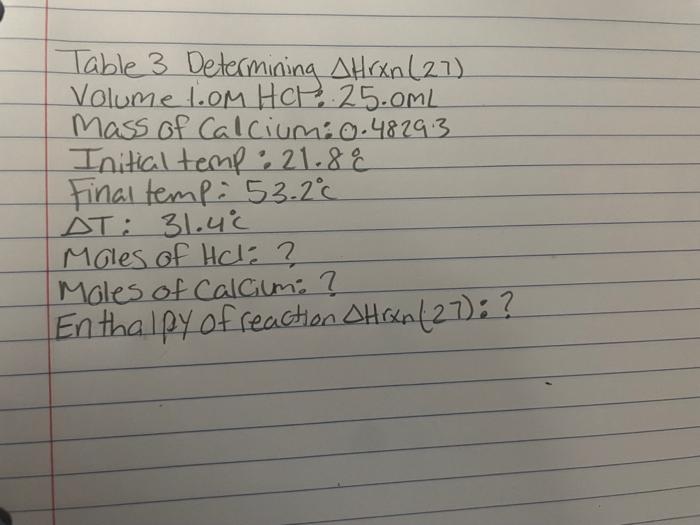 Table 3 Determining ΔHrxn(27)
Volume 1.0M HCl: 25.0mL
Mass of Calcium: 0.4829.3
Initial temp: 21.8°C
Final temp: 53.2°C
ΔT: 31.4°C
Moles of HCl: ?
Moles of Calcium: ?
Enthalpy of reaction ΔHrxn(27): ?